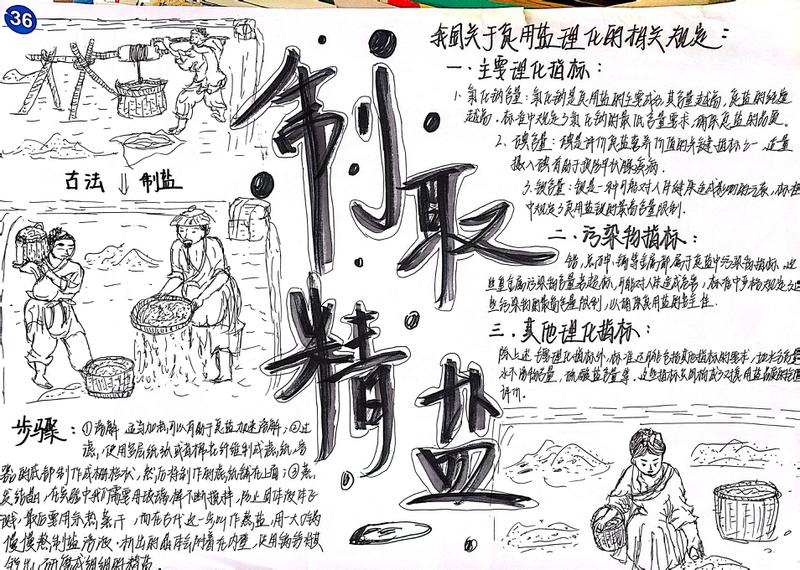 36
制取
精盐
古法 制盐
我国关于食用盐理化的相关规定：
一、主要理化指标：
1、氯化钠含量：氯化钠是食用盐的主要成分，其含量越高，食盐的纯度
越高，标准中规定了氯化钠的最低含量要求，确保食盐的质量。
2、碘含量：碘是评价食盐营养价值的关键指标之一，适量
摄入碘有助于预防甲状腺疾病。
3、钡含量：钡是一种可能对人体健康造成影响的元素，标准
中规定了食用盐钡的最高含量限制。
二、污染物指标：
铅、总砷、镉等金属都属于食盐中污染物指标，这
些重金属污染物含量若超标，可能对人体造成危害，标准中严格规定了这
些污染物的最高含量限制，以确保食用盐的安全性。
三、其他理化指标：
除上述主要理化指标外，标准还可能包括其他指标的要求，如水分含量
水不溶物含量、硫酸盐含量等，这些指标共同构成了对食用盐品质的全面
评价。
步骤：①溶解 适当加热可以有助于食盐加速溶解；②过
滤，使用多层纸或直接在纤维制成滤纸，容
器的底部制作成栅格状，然后将制作的滤纸铺在上面；③蒸
发结晶，在实验中我们需要用玻璃棒不断搅拌，防止固体液体飞
溅，最后要用余热蒸干，而在古代这一步叫作熬盐，用一大锅
慢慢熬制盐溶液，析出的晶体会附着在内壁，使用锅铲将其
铲出，研磨成细细的精盐。